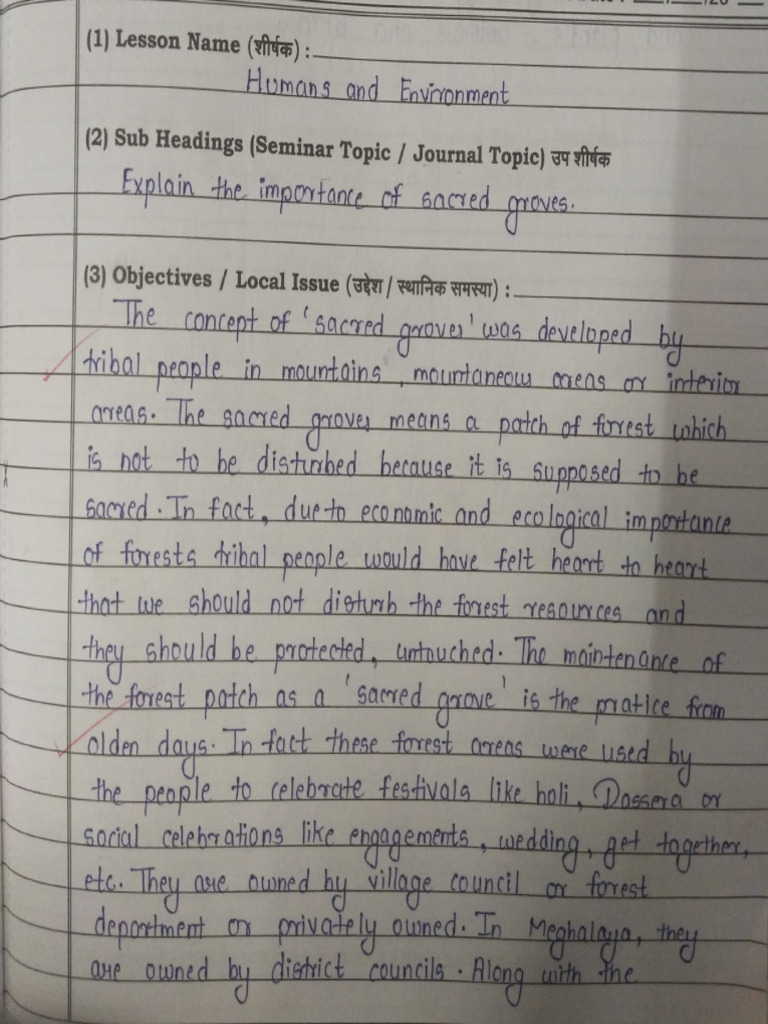 (1) Lesson Name (शीर्षक) :
Humans and Environment
(2) Sub Headings (Seminar Topic / Journal Topic) उप शीर्षक
Explain the importance of sacred groves.
(3) Objectives / Local Issue (उद्देश / स्थानिक समस्या) :
The concept of 'sacred groves' was developed by
tribal people in mountains, mountaneous areas or interior
areas. The sacred groves means a patch of forest which
is not to be disturbed because it is supposed to be
sacred. In fact, due to economic and ecological importance
of forests tribal people would have felt heart to heart
that we should not disturb the forest resources and
they should be protected, untouched. The maintenance of
the forest patch as a 'sacred grove' is the pratice from
olden days. In fact these forest areas were used by
the people to celebrate festivals like holi, Dassera or
social celebrations like engagements, wedding, get together,
etc. They are owned by village council or forest
department or privately owned. In Meghalaya, they
are owned by district councils. Along with the